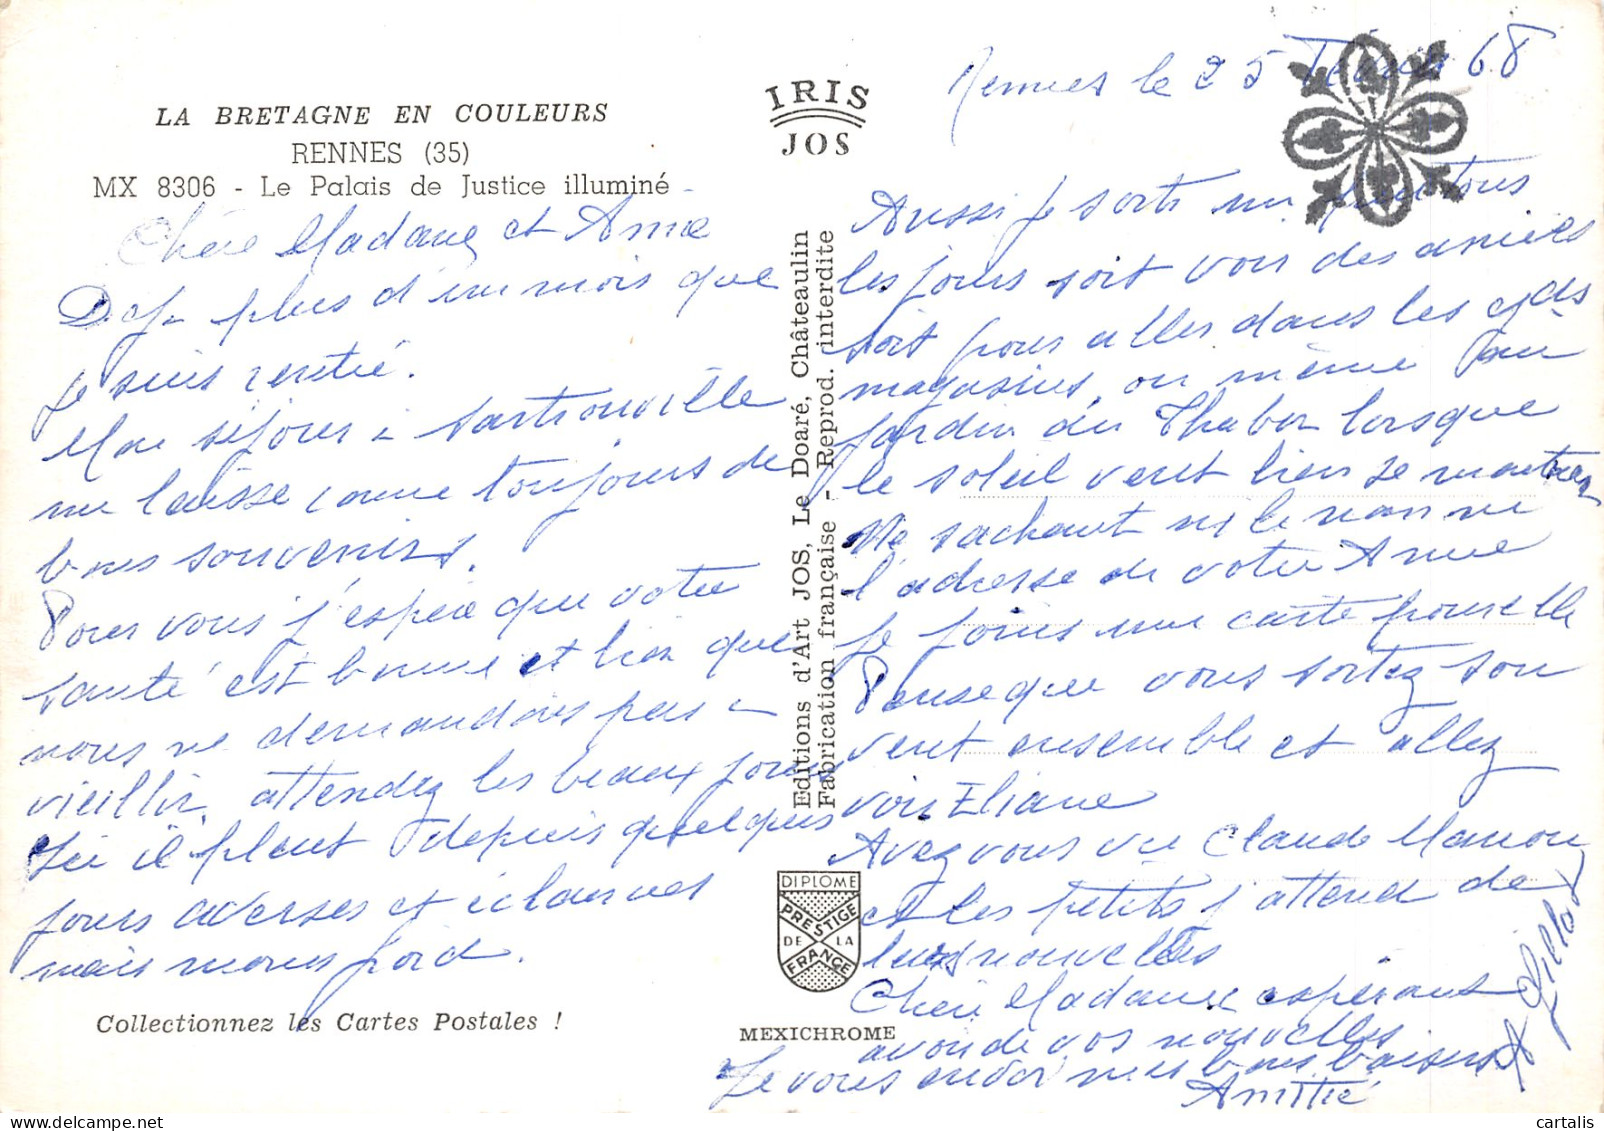 LA BRETAGNE EN COULEURS
RENNES (35)
MX 8306 - Le Palais de Justice illuminé
Chère Madame et Amie
Déjà plus d'un mois que
je suis rentré.
Mon séjour à Sartrouville
me laisse comme toujours de
bons souvenirs.
Pour vous j'espère que votre
santé est bonne et bien que
nous ne demandons pas à
vieillir, attendez les beaux jours
Ici il pleut depuis quelques
jours averses et éclaircies
mais moins froid.
Collectionnez les Cartes Postales !
IRIS
JOS
Editions d'Art JOS, Le Doaré, Châteaulin
Fabrication française - Reprod. interdite
DIPLOME
PRESTIGE
DE LA
FRANCE
MEXICHROME
Rennes le 25 Février 68
Aussi je sors un peu tous
les jours soit voir des amies
soit pour aller dans les gds
magasins, ou même au
jardin du Thabor lorsque
le soleil veut bien se montrer
Ne sachant ni le nom ni
l'adresse de votre Amie
je joins une carte pour elle
Pense que vous sortez sou
vent ensemble et allez
voir Eliane
Avez vous vu Claude Manou
et les petits j'attend de
leurs nouvelles
Chère Madame espérant
avoir de vos nouvelles
Je vous envoi mes bons baisers
Amitié